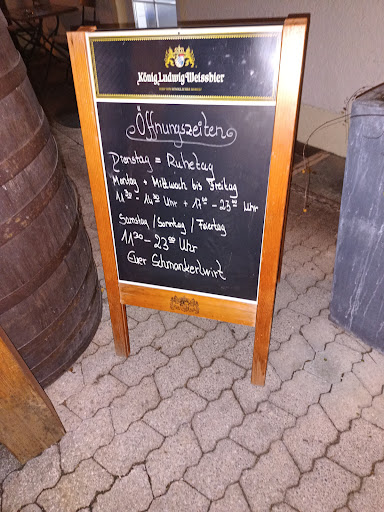 König Ludwig Weissbier
Öffnungszeiten
Dienstag = Ruhetag
Montag + Mittwoch bis Freitag
11³⁰ - 14³⁰ Uhr + 17⁰⁰ - 23⁰⁰ Uhr
Samstag / Sonntag / Feiertag
11³⁰ - 23⁰⁰ Uhr
Euer Schmankerlwirt